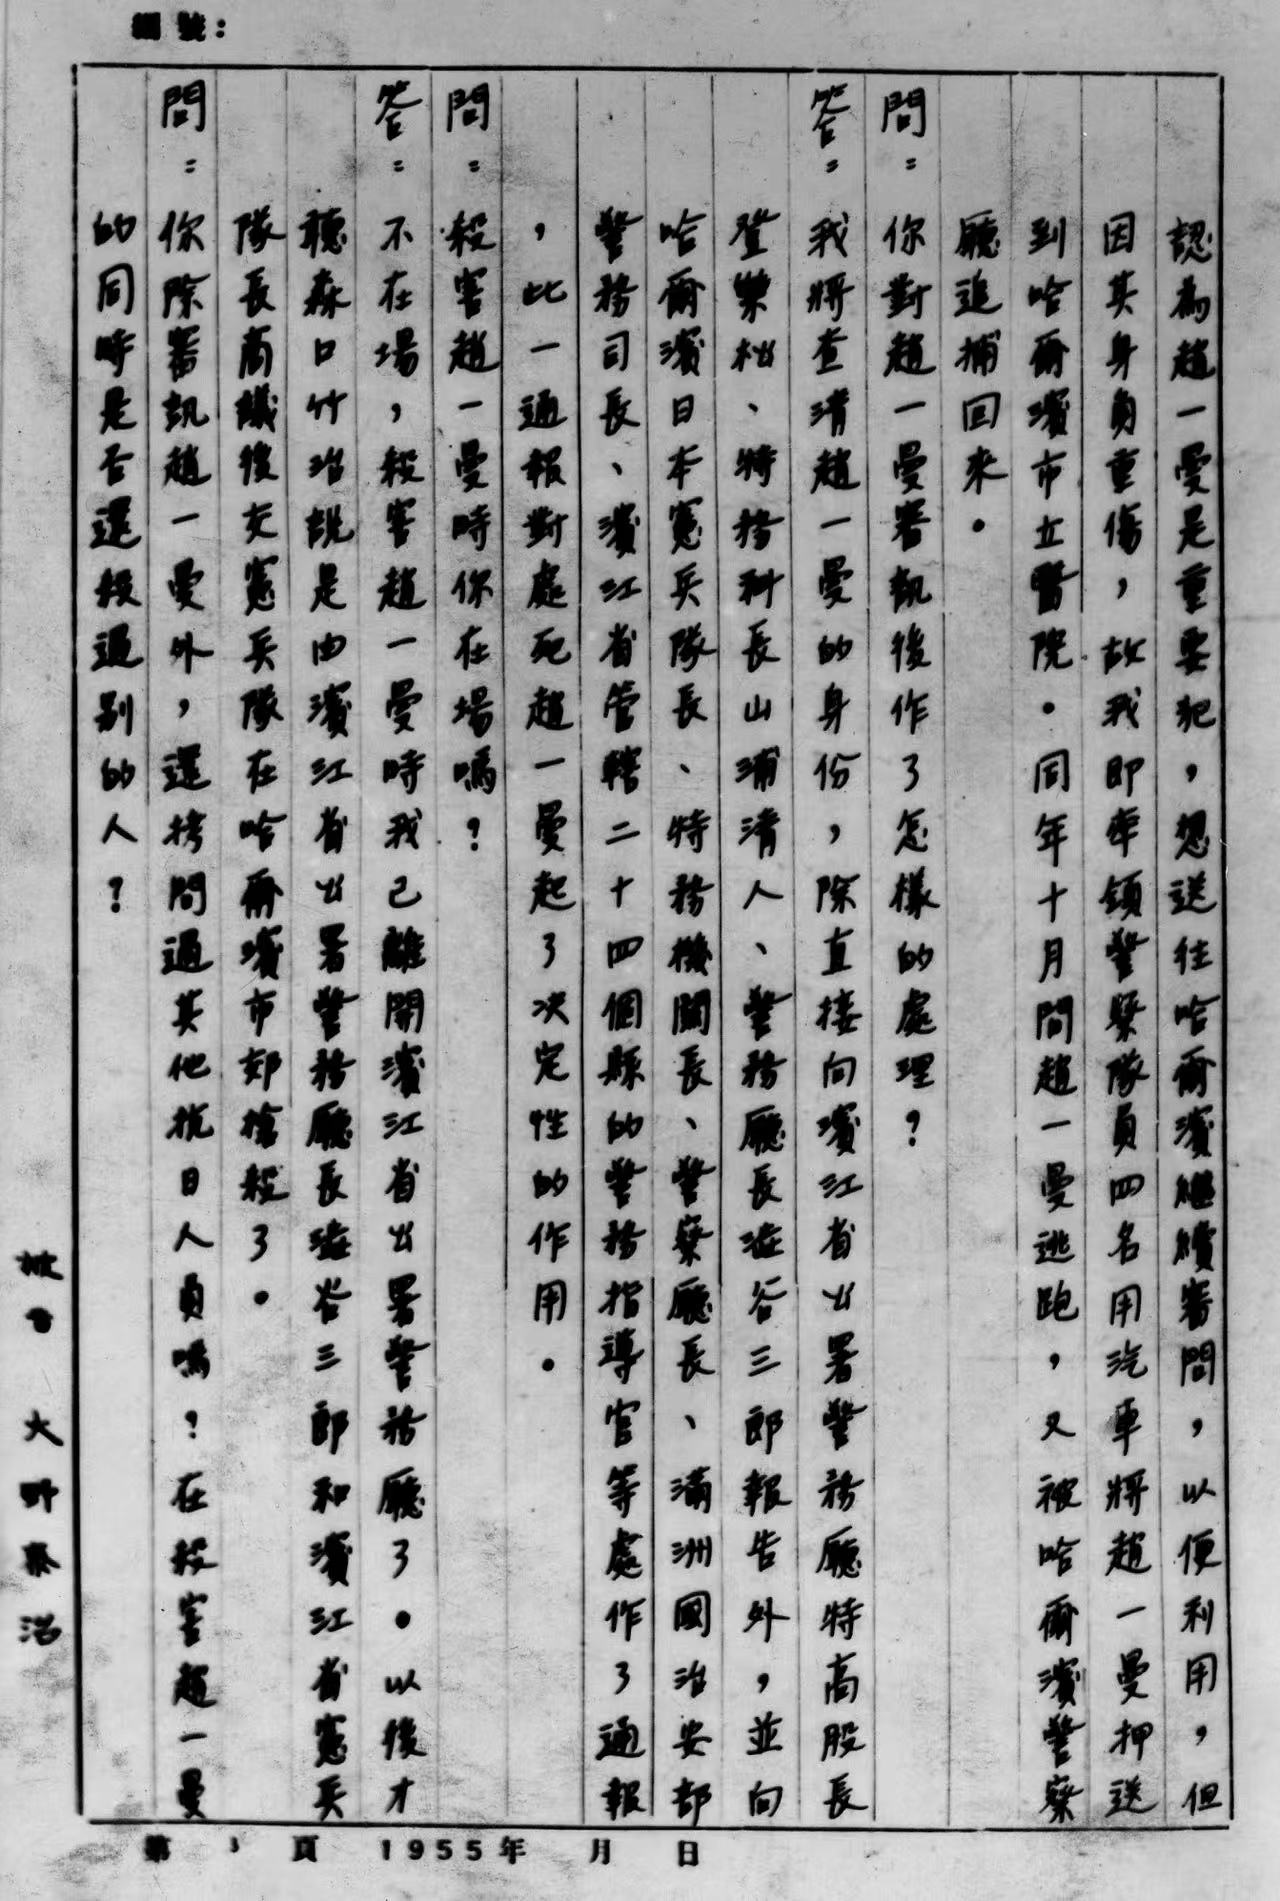 編號：
認為趙一曼是重要犯，想送往哈爾濱繼續審問，以便利用，但
因其身負重傷，故我即率領警察隊員四名用汽車將趙一曼押送
到哈爾濱市立醫院。同年十月間趙一曼逃跑，又被哈爾濱警察
廳追捕回來。
問：你對趙一曼審訊後作了怎樣的處理？
答：我將查清趙一曼的身份，除直接向濱江省公署警務廳特高股長
登樂松、特務科長山浦清人、警務廳長澁谷三郎報告外，並向
哈爾濱日本憲兵隊長、特務機關長、警察廳長、滿洲國治安部
警務司長、濱江省管轄二十四個縣的警務指導官等處作了通報
，此一通報對處死趙一曼起了決定性的作用。
問：殺害趙一曼時你在場嗎？
答：不在場，殺害趙一曼時我已離開濱江省公署警務廳了。以後才
聽森口竹治說是由濱江省公署警務廳長澁谷三郎和濱江省憲兵
隊長商議後交憲兵隊在哈爾濱市郊槍殺了。
問：你除審訊趙一曼外，還拷問過其他抗日人員嗎？在殺害趙一曼
的同時是否還殺過別的人？
大野泰治
第 頁 1955年 月 日